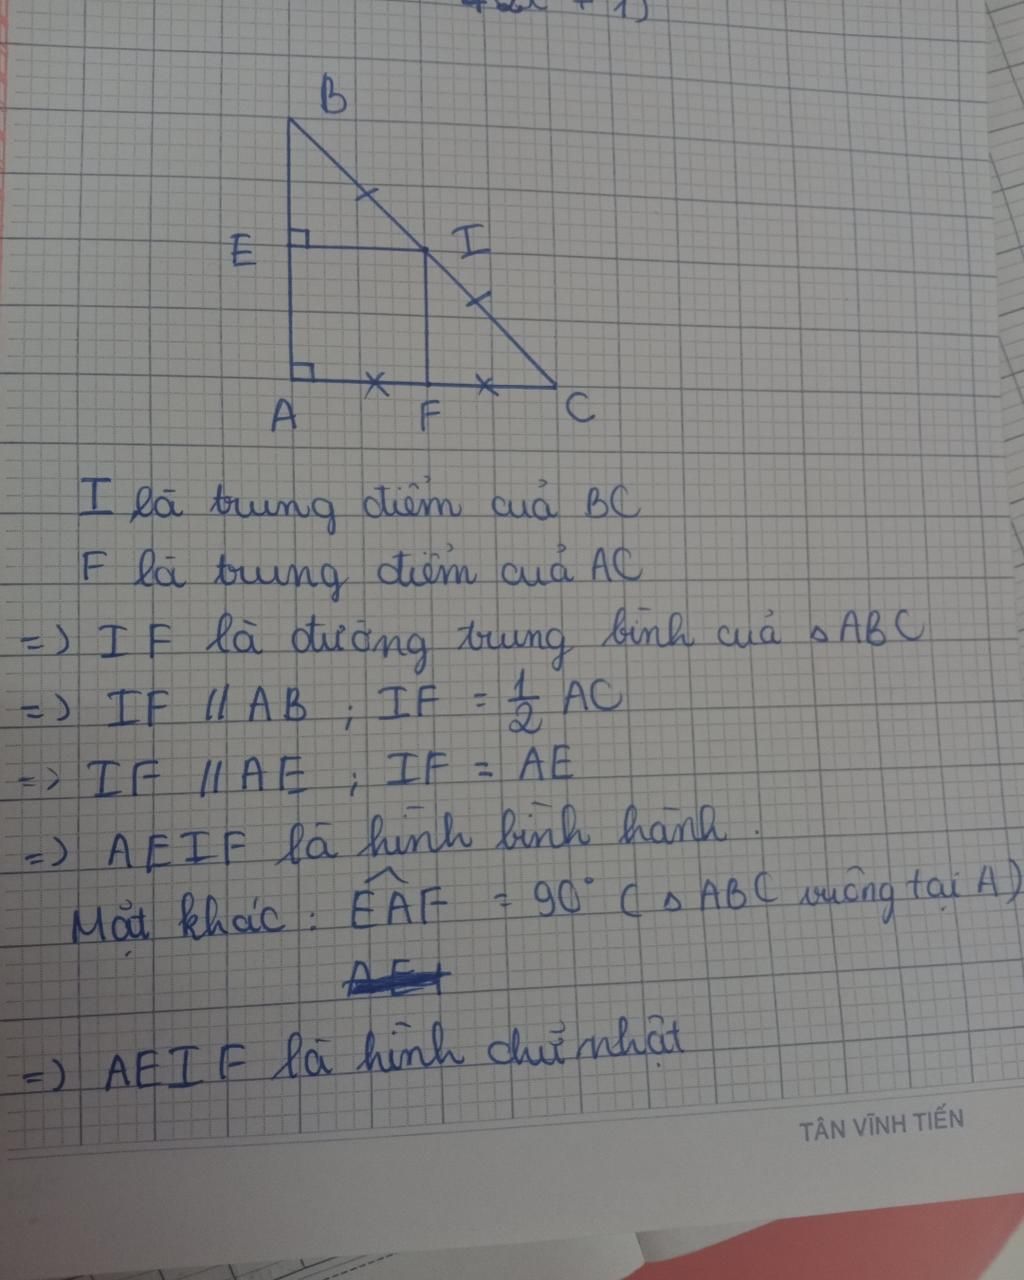 B
E
I
A
F
C
I là trung điểm của BC
F là trung điểm của AC
=> IF là đường trung bình của △ABC
=> IF // AB ; IF = 1/2 AC
=> IF // AE ; IF = AE
=> AEIF là hình bình hành.
Mặt khác: EAF̂ = 90° (△ABC vuông tại A)
=> AEIF là hình chữ nhật
TÂN VĨNH TIẾN